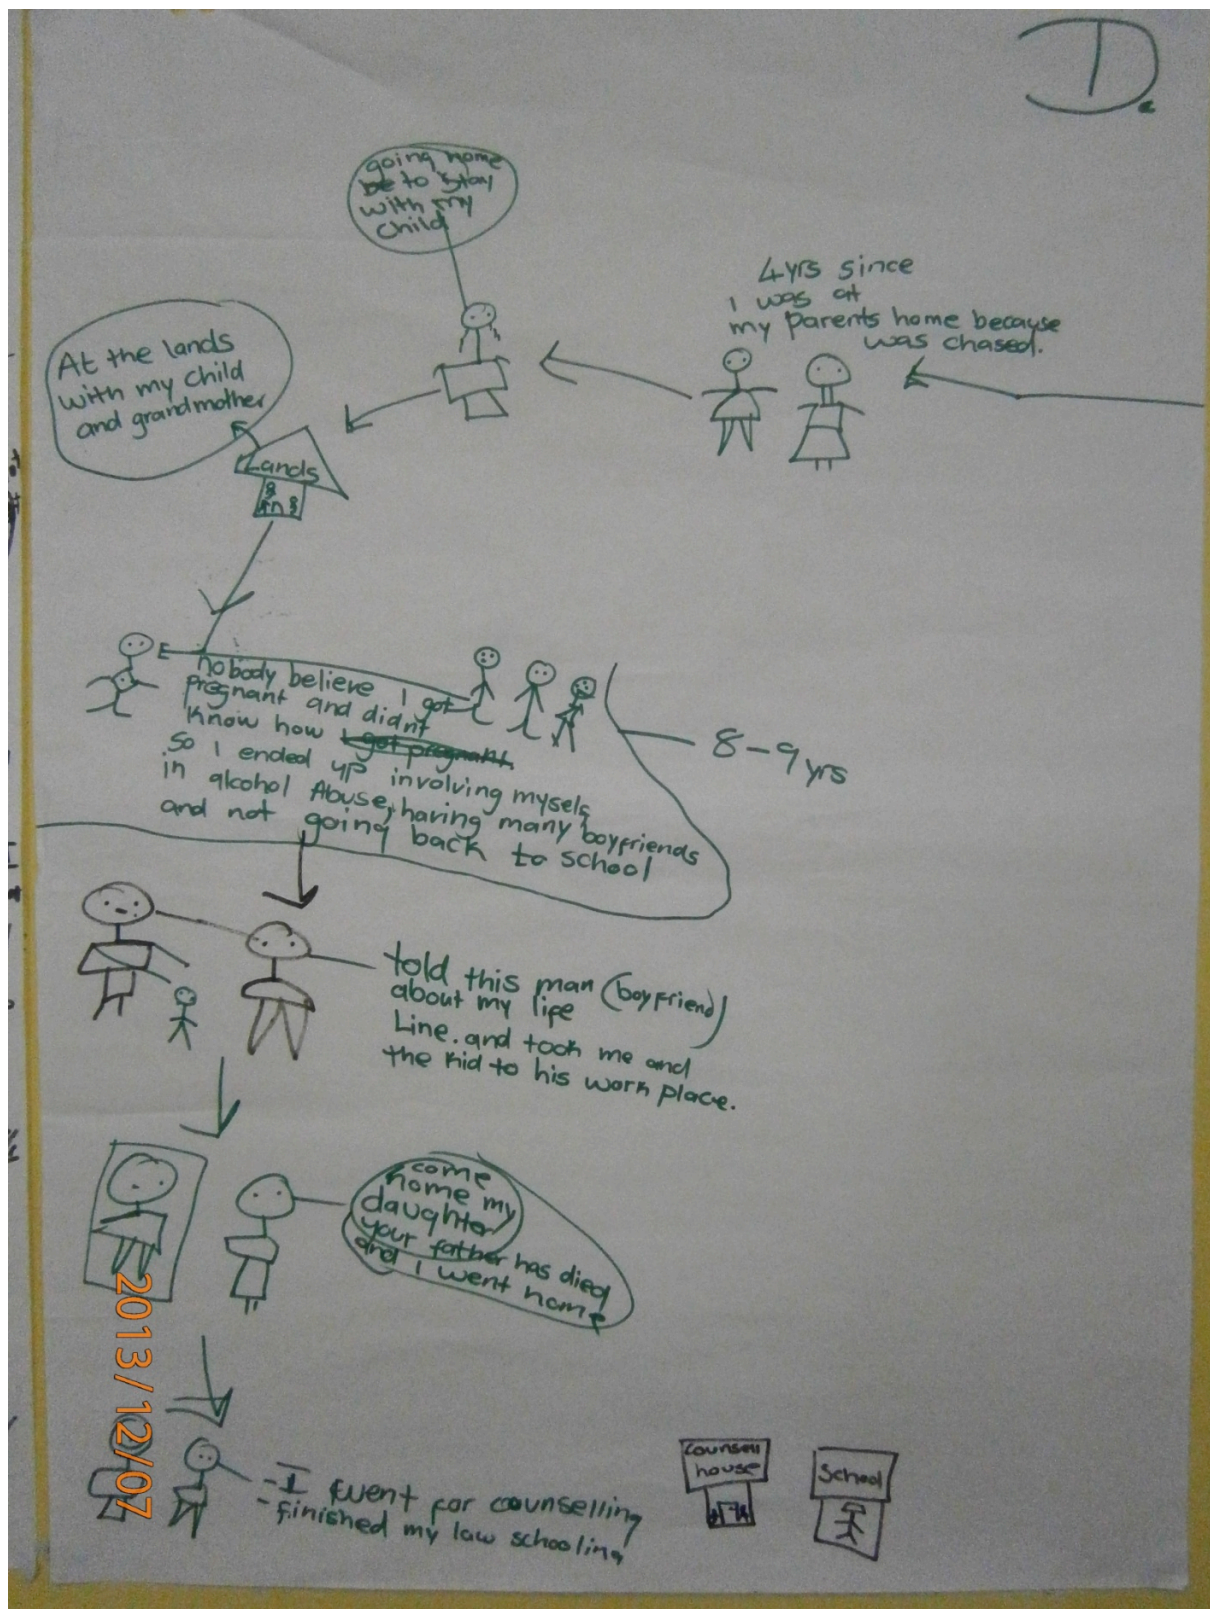 D.
going home
be to stay
with my
child
4yrs since
I was at
my parents home because
was chased.
At the lands
with my child
and grandmother
Lands
nobody believe I got
pregnant and didnt
know how I got pregnant.
so I ended up involving myself
in alcohol Abuse, having many boyfriends
and not going back to school
8-9yrs
told this man (boyfriend)
about my life
Line. and took me and
the kid to his work place.
come
home my
daughter
your father has died
and I went home
- I went for counselling
- finished my law schooling
Counsell
house
School
2013/12/07